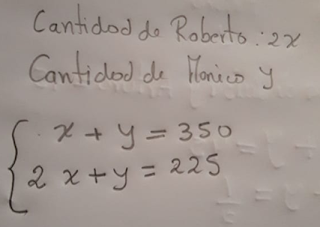 Cantidad de Roberto: 2x
Cantidad de Monica y
x + y = 350
2 x + y = 225